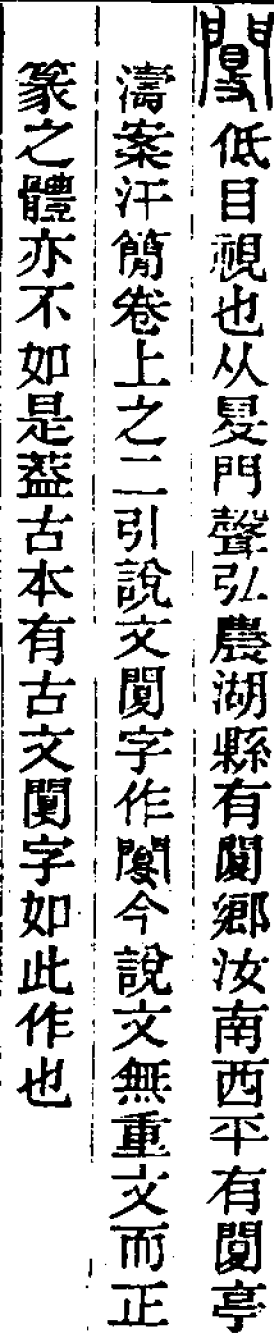 闅低目視也从𥄎門聲弘農湖縣有闅鄉汝南西平有闅亭
濤案汗簡卷上之二引說文闅字作今說文無重文而正
篆之體亦不如是葢古本有古文闅字如此作也